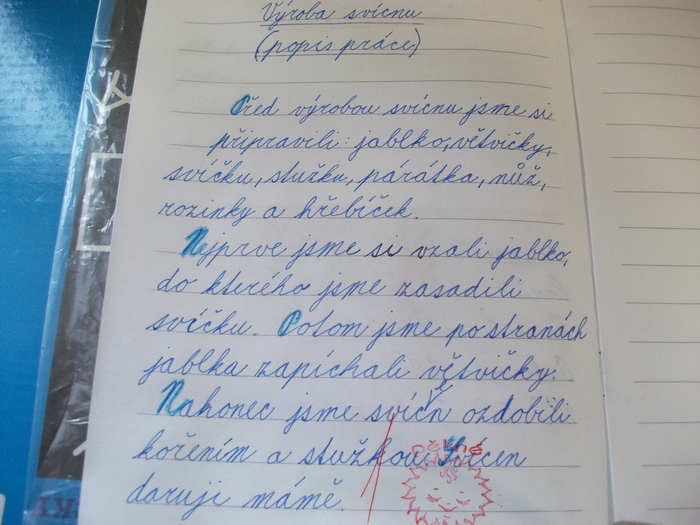 Výroba svícnu
(popis práce)
Před výrobou svícnu jsme si
připravili: jablko, větvičky,
svíčku, stužku, párátka, nůž,
rozinky a hřebíček.
Nejprve jsme si vzali jablko,
do kterého jsme zasadili
svíčku. Potom jsme po stranách
jablka zapíchali větvičky.
Nakonec jsme svícn ozdobili
kořením a stužkou. Svícen
daruji mámě.